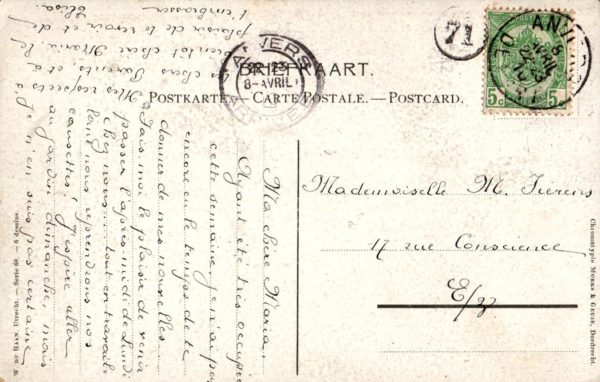 BRIEFKAART.
POSTKARTE.—CARTE POSTALE.—POSTCARD.
ANVERS
8-AVRIL
71
5c 5c
Mademoiselle M. Tierens
17 rue Conscience
E/V
Ma chère Maria,
Ayant été très occupée
cette semaine, je n'ai pas
encore eu le temps de te
donner de mes nouvelles.
Fais-moi le plaisir de venir
passer l'après-midi de Lundi
chez nous; tout en travail-
lant nous reprendrons nos
causettes; j'espère aller
au jardin dimanche, mais
je n'en suis pas certaine
Mes respects à
tes chers Parents, et à
bientôt chère Maria, le
plaisir de te revoir et de
t'embrasser
Elisa.
W. DE HAAN, Utrecht. — Serie 68. — 6 dessins.
Chromotypie MORKS & GEUZE, Dordrecht.